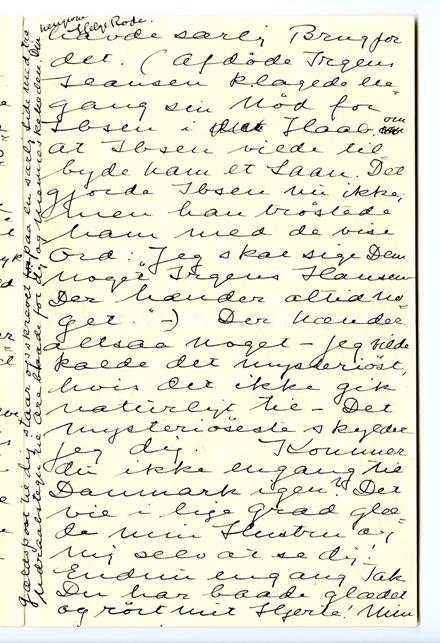 havde særlig Brug for
det. (Afdøde Irgens
Hansen klagede en
gang sin Nød for
Ibsen i Haab om
at Ibsen vilde til-
byde ham et Laan. Det
gjorde Ibsen nu ikke,
men han trøstede
ham med de vise
Ord: "Jeg skal sige Dem
noget Irgens Hansen
Der hænder altid no-
get." -) Der hænder
altsaa noget - jeg vilde
kalde det mysteriøst,
hvis det ikke gik
naturligt til - Det
mysteriøseste skylder
jeg dig. Kommer
du ikke engang til
Danmark igen? Det
vil i lige grad glæ-
de min Hustru og
mig selv at se dig!
Endnu engang Tak
Du har baade glædet
og rørt mit Hjerte! Min
Gældspost til dig staar opskrevet paa en særlig Side med til
Udraabstegn til Ære baade for dig og Menneskeheden. Din
hengivne
Helge Rode.